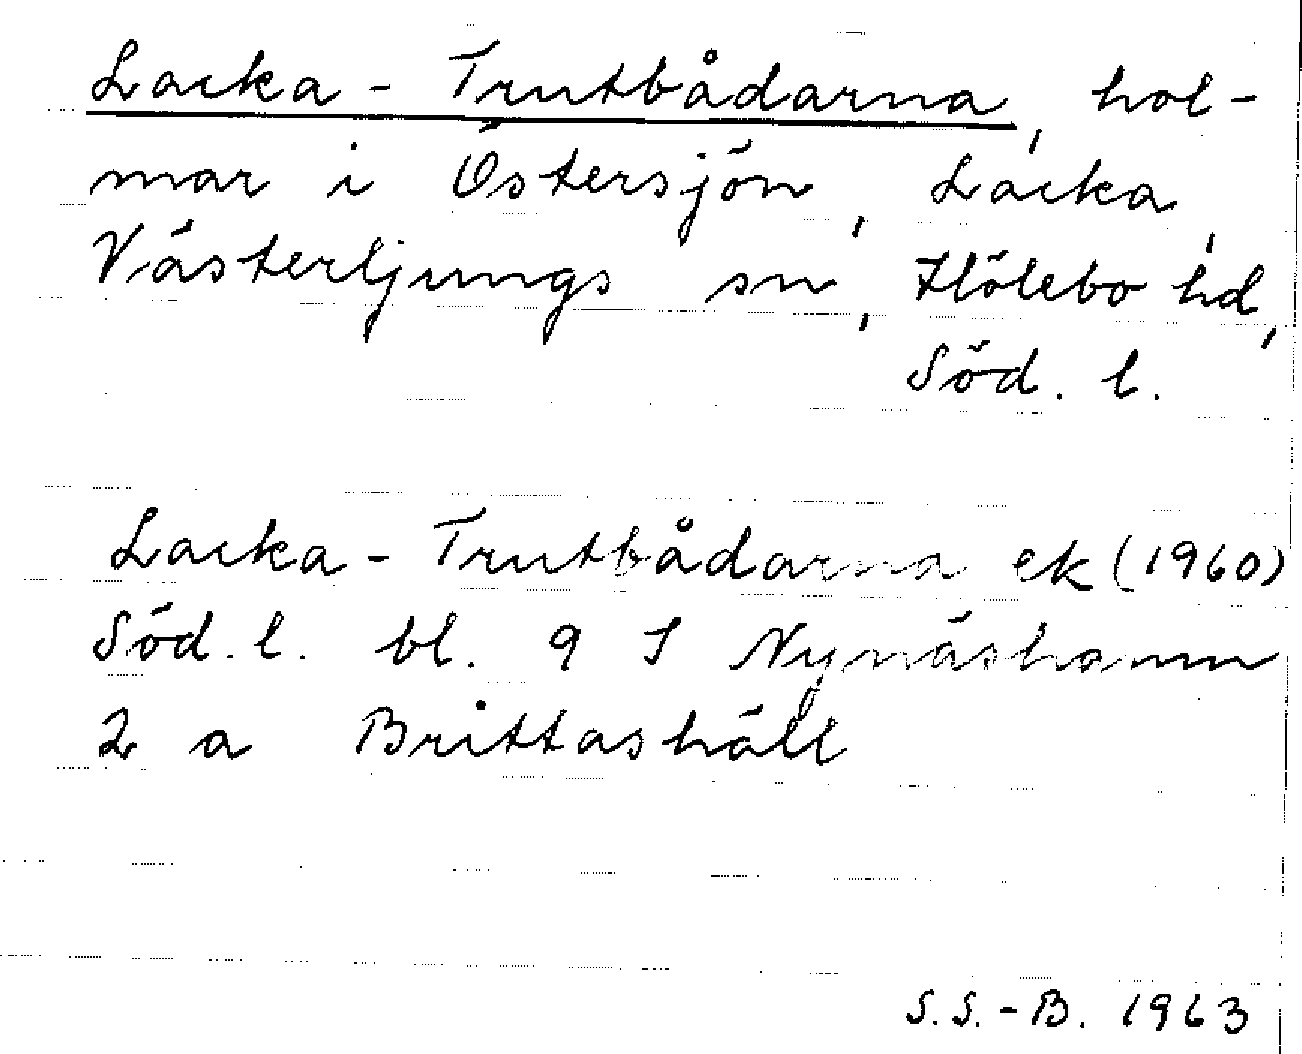 Lacka - Trutbådarna, hol-
mar i Östersjön, Lacka,
Västerljungs sn, Hölebo hd,
Söd. l.
Lacka - Trutbådarna ek (1960)
Söd. l. bl. 9 I Nynäshamn
2 a Brittashäll
S.S.-B. 1963